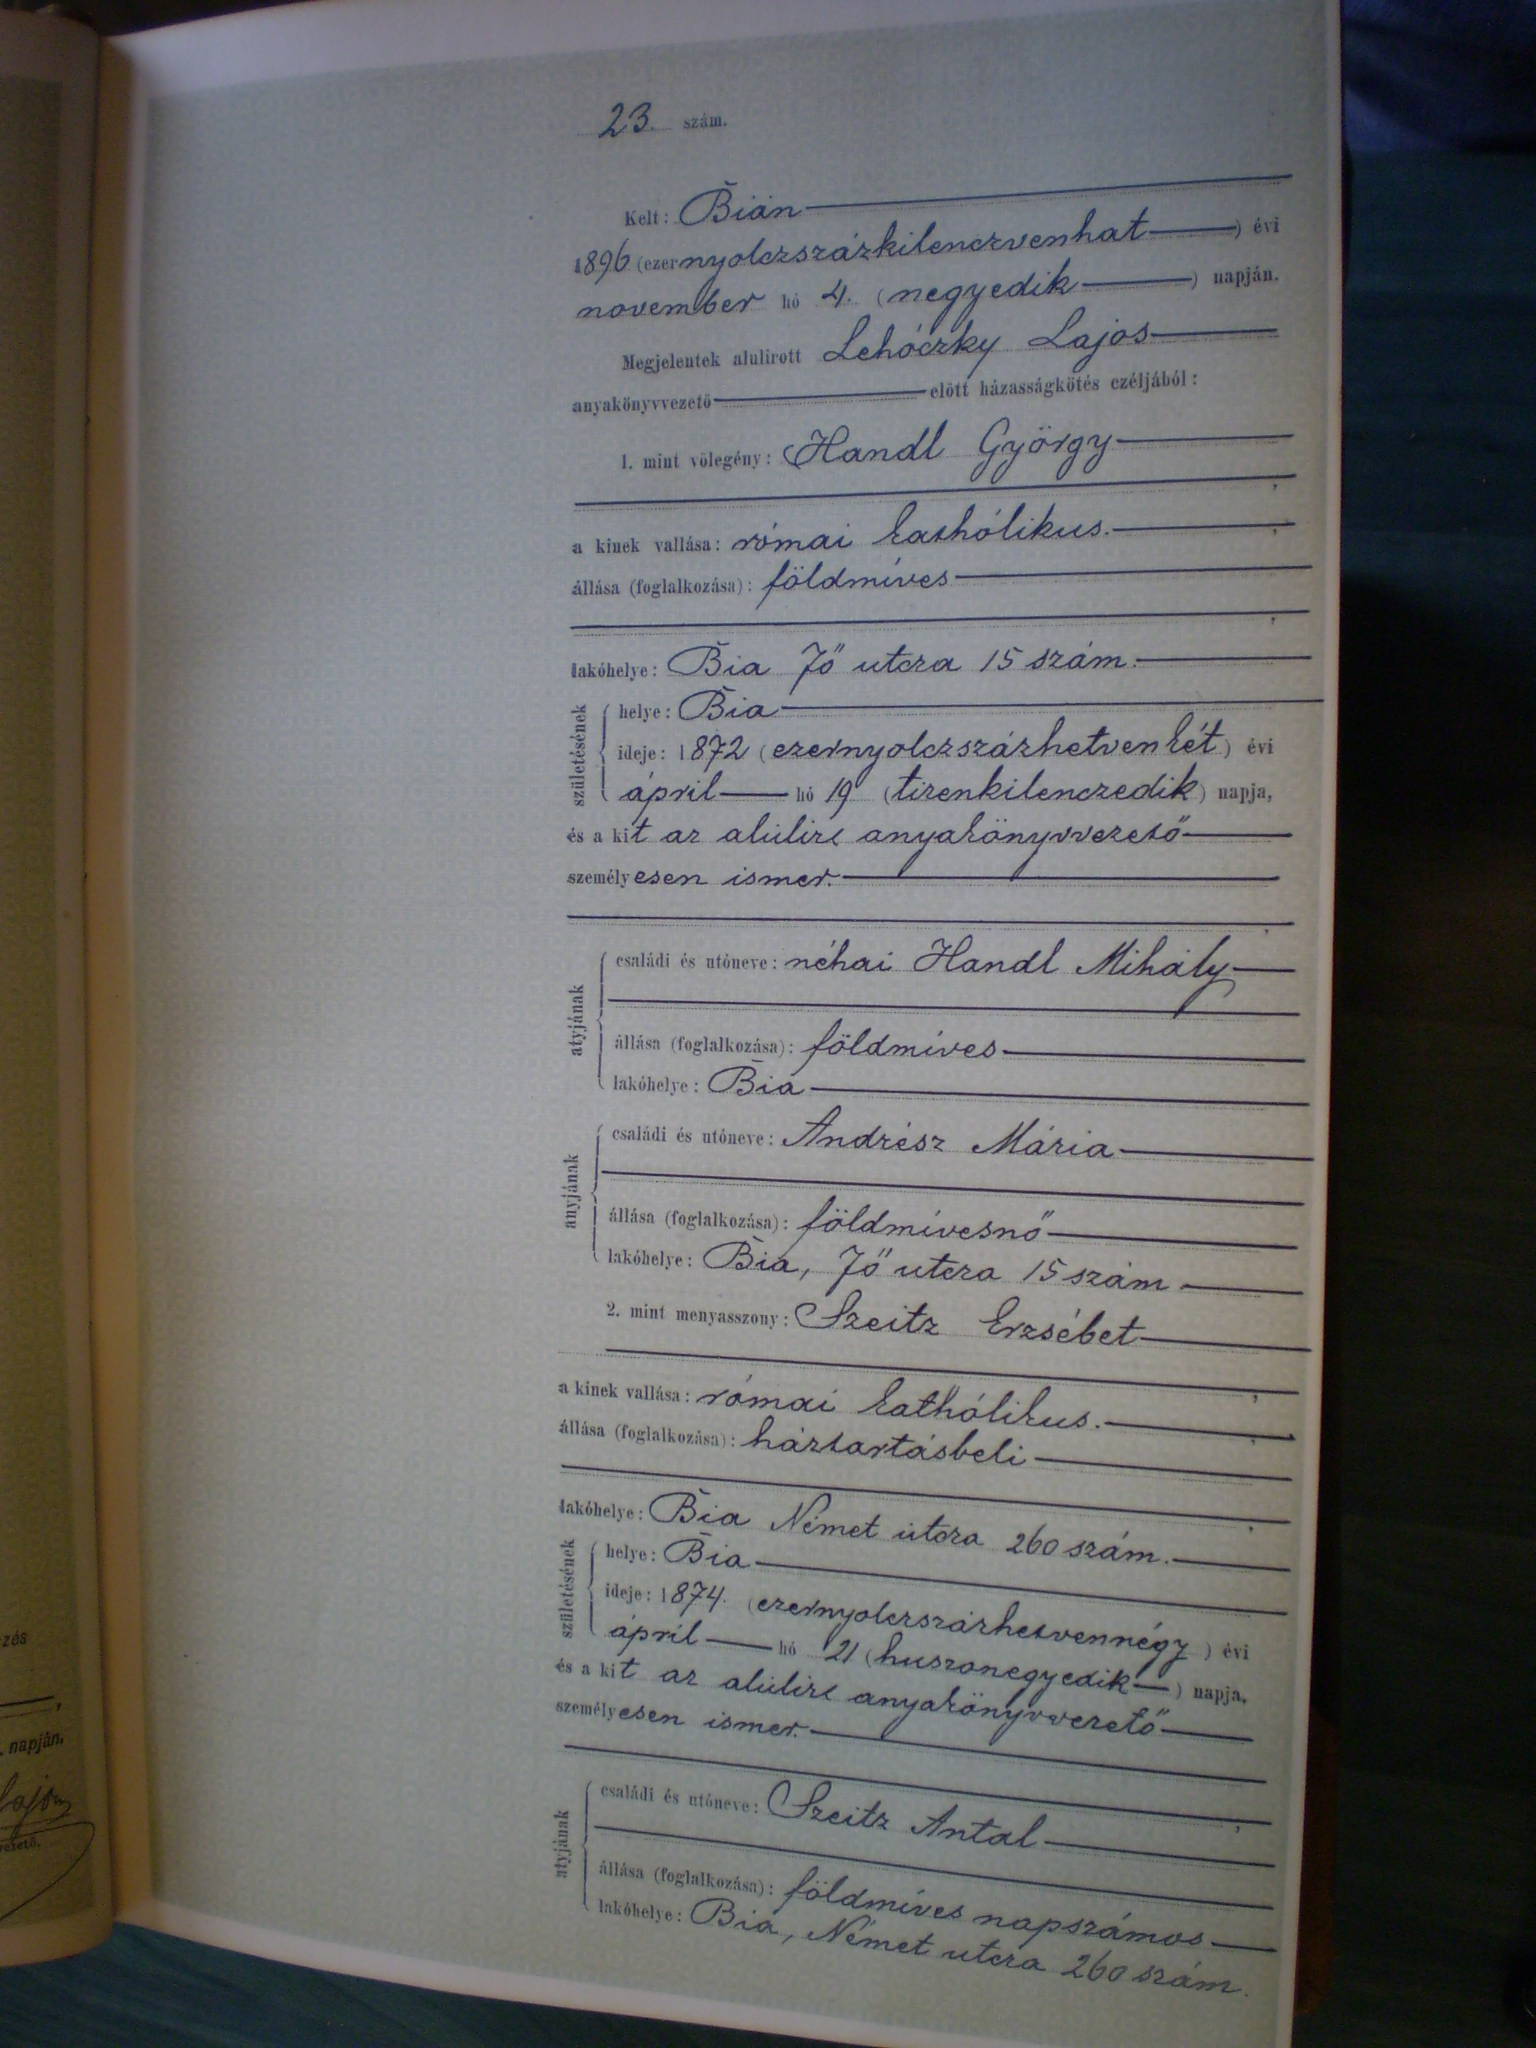 23. szám.
Kelt: Bián
1896 (ezernyolczszázkilenczvenhat) évi
november hó 4. (negyedik) napján.
Megjelentek alulírott Lehóczky Lajos
anyakönyvvezető előtt házasságkötés czéljából:
1. mint vőlegény: Handl György
a kinek vallása: római kathólikus.
állása (foglalkozása): földmíves
lakóhelye: Bia Fő utcza 15 szám.
születésének
helye: Bia
ideje: 1872 (ezernyolczszázhetvenkét) évi
ápril hó 19 (tizenkilenczedik) napja,
és a kit az alulirt anyakönyvvezető
személyesen ismer.
atyjának
családi és utóneve: néhai Handl Mihály
állása (foglalkozása): földmíves
lakóhelye: Bia
anyjának
családi és utóneve: Andrész Mária
állása (foglalkozása): földmívesnő
lakóhelye: Bia, Fő utcza 15 szám
2. mint menyasszony: Szeitz Erzsébet
a kinek vallása: római kathólikus.
állása (foglalkozása): háztartásbeli
lakóhelye: Bia Német utcza 260 szám.
születésének
helye: Bia
ideje: 1874. (ezernyolczszázhetvennégy) évi
ápril hó 21 (huszonegyedik) napja,
és a kit az alulirt anyakönyvvezető
személyesen ismer.
atyjának
családi és utóneve: Szeitz Antal
állása (foglalkozása): földmíves napszámos
lakóhelye: Bia, Német utcza 260 szám.
zés
napján.